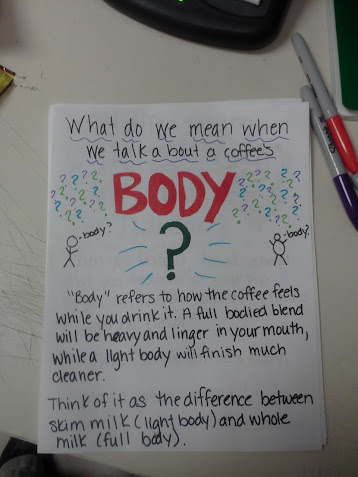 What do we mean when
we talk about a coffee's
BODY
?
-body?
-body?
"Body" refers to how the coffee feels
while you drink it. A full bodied blend
will be heavy and linger in your mouth,
while a light body will finish much
cleaner.
Think of it as the difference between
skim milk (light body) and whole
milk (full body).